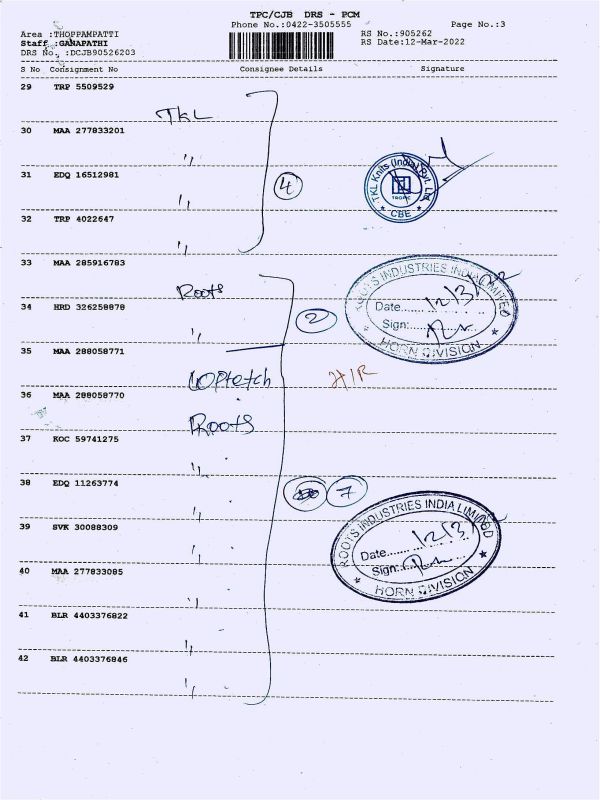 TPC/CJB DRS - PCM
Phone No.:0422-3505555 Page No.:3
Area :THOPPAMPATTI RS No.:905262
Staff :GANAPATHI RS Date:12-Mar-2022
DRS No. :DCJB90526203
S No Consignment No Consignee Details Signature
29 TRP 5509529
TKL
30 MAA 277833201
"
31 EDQ 16512981
4
TKL Knits (India) Pvt. Ltd
TROPIC
CBE
"
32 TRP 4022647
"
33 MAA 285916783
Roots
ROOTS INDUSTRIES INDIA LIMITED
Date....... 12/3/22
Sign:
HORN DIVISION
34 HRD 326258878
2
"
35 MAA 288058771
H/R
36 MAA 288058770
Roots
37 KOC 59741275
"
38 EDQ 11263774
7
"
39 SVK 30088309
ROOTS INDUSTRIES INDIA LIMITED
Date...... 12/3
Sign:
HORN DIVISION
"
40 MAA 277833085
"
41 BLR 4403376822
"
42 BLR 4403376846
"